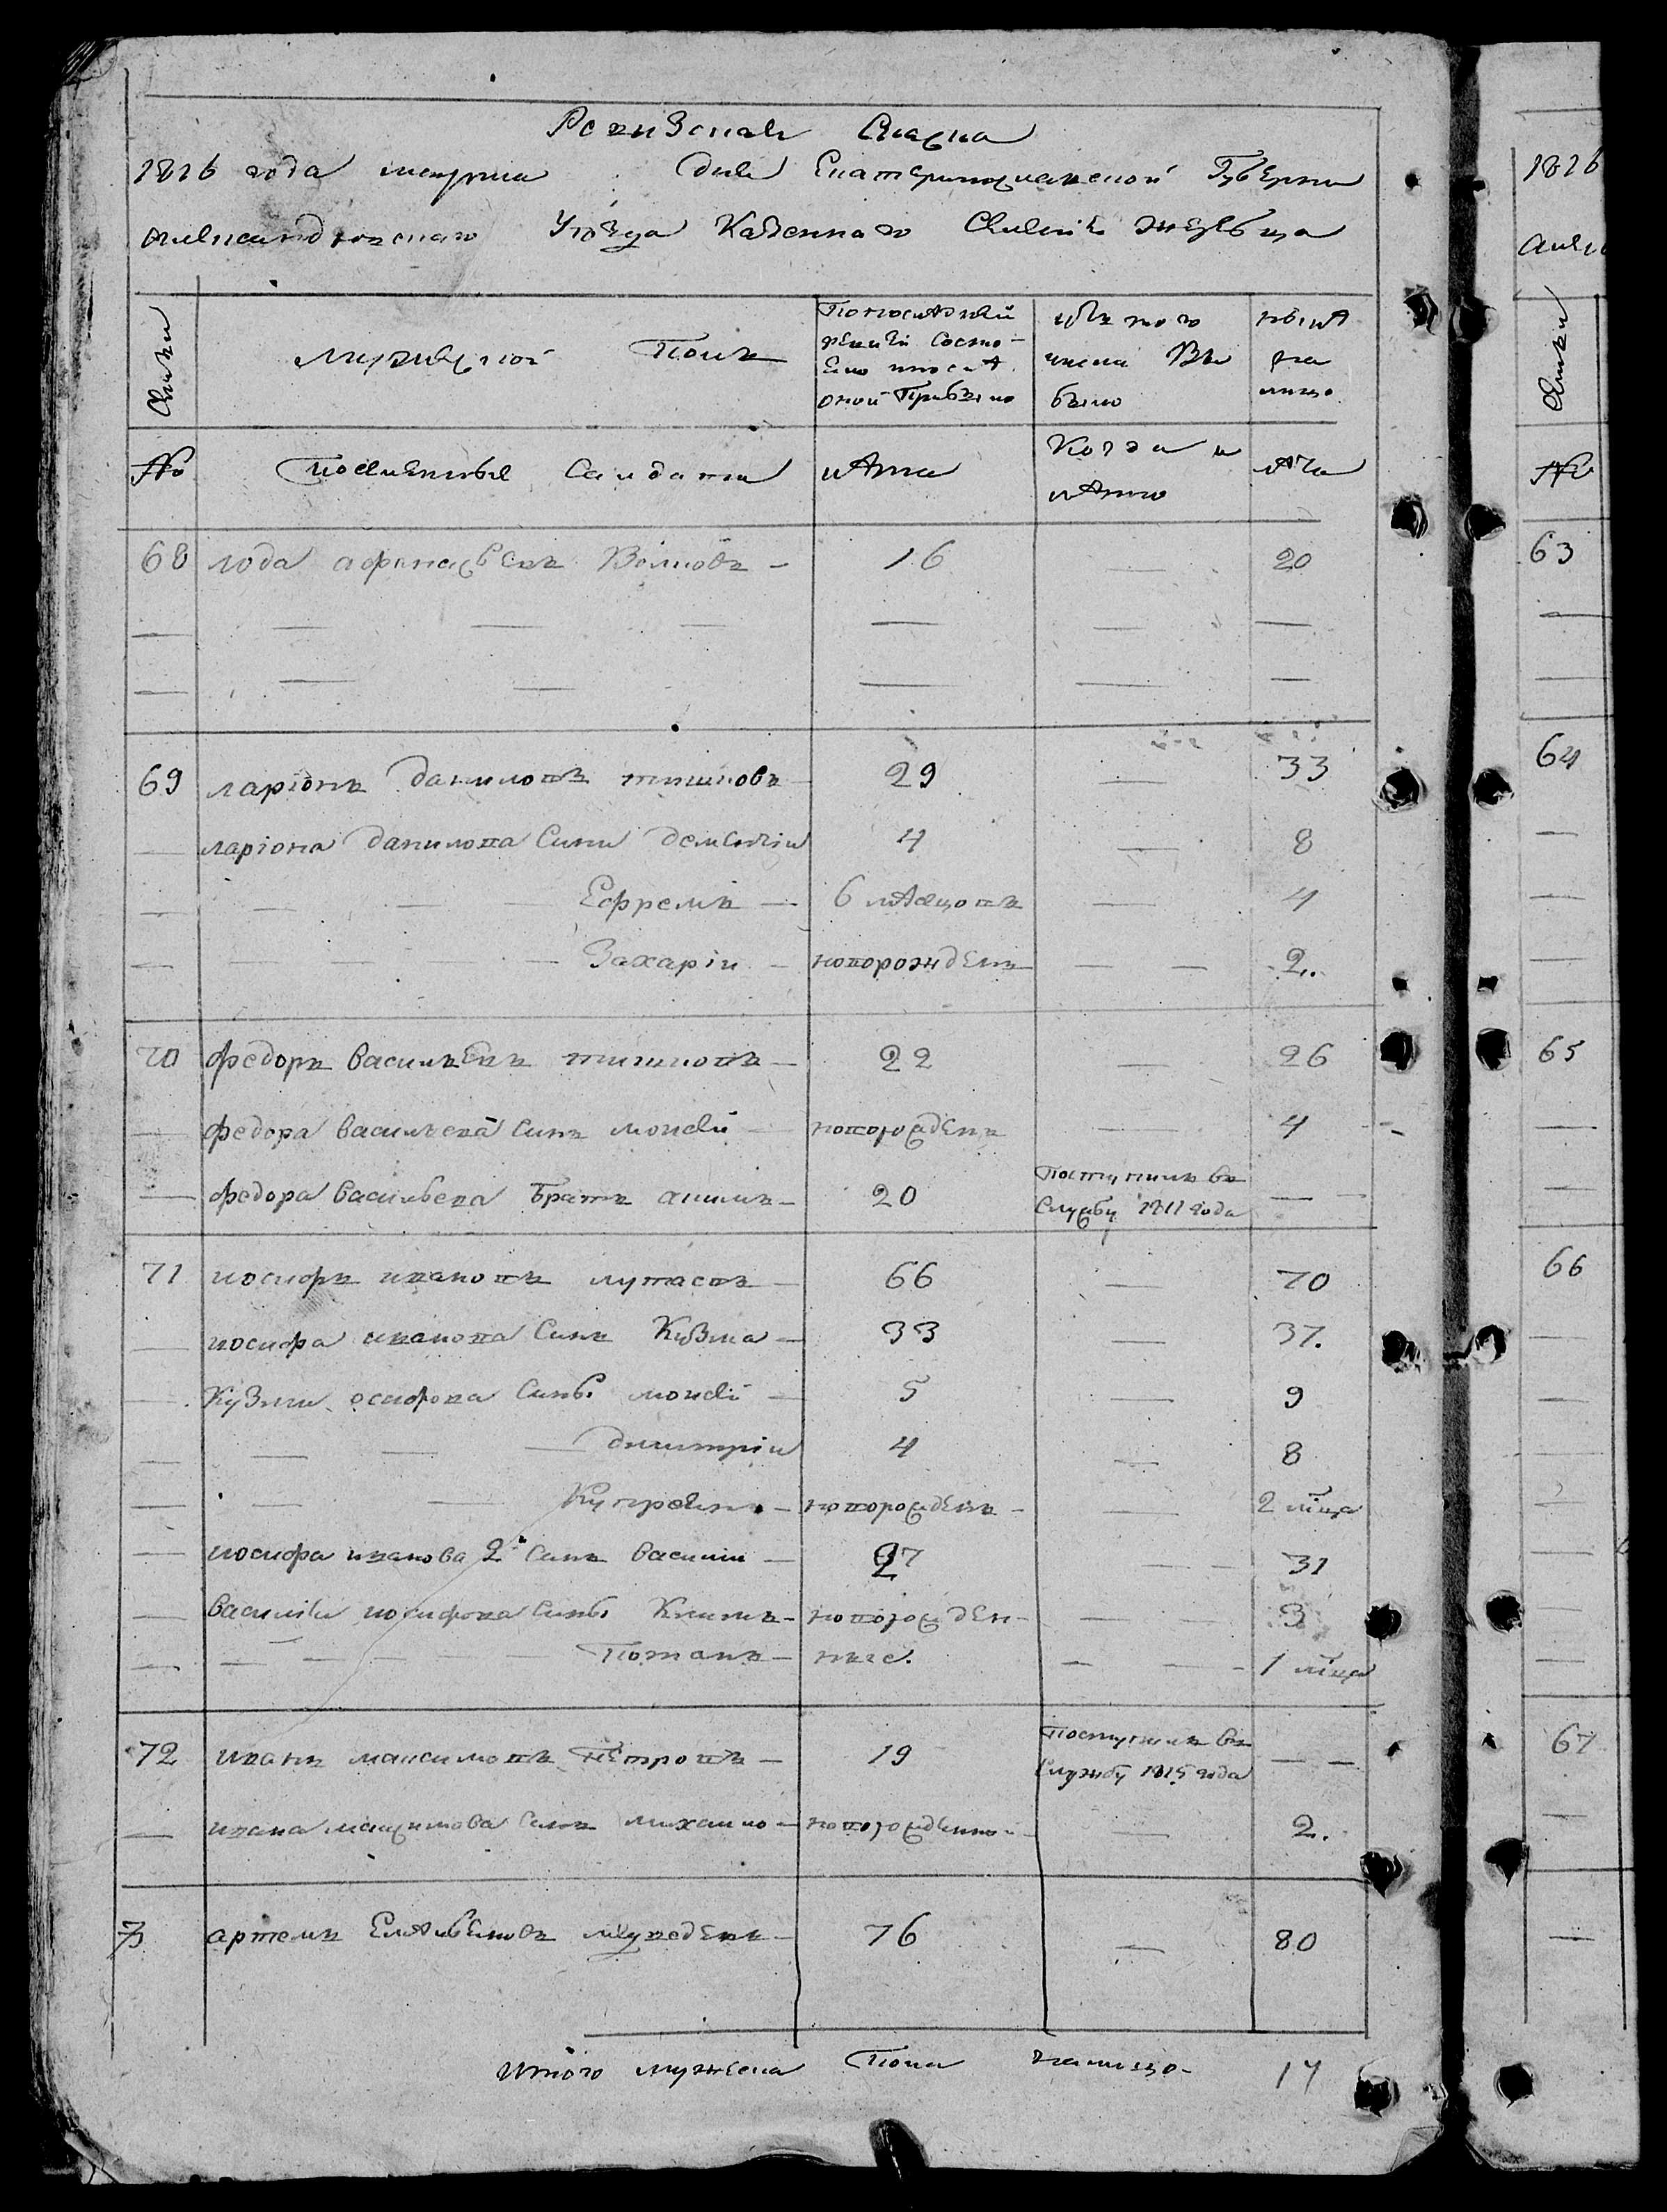 Ревизская Сказка
1816 года марта дня Екатеринославской Губернии
Александровского Уѣзда Казеннаго Селенія Жеребца
Семьи
мужеской Полъ
По последней
ревизіи состо-
яло и после
оной Прибыло
изъ того
числа Вы
было
нынѣ
на
лицо
№
поселенные Салдаты
лѣта
Когда и
лѣто
лѣта
68 афанасьевъ Волковъ — 16 — 20
69 ларіонъ даниловъ тишковъ 29 — 33
ларіона данилова Сини дементіи 4 — 8
Ефремъ — 6 мѣсяцовъ — 4
Захаріи — новорожденъ — 2
70 федоръ василъевъ тишковъ — 22 — 26
федора василъева синъ моисей — новорожденъ — 4
федора Васильева Братъ 20 Поступилъ въ —
Службу 1811 года
71 иосифъ ивановъ лутаевъ — 66 — 70
иосифа иванова Синъ Кузма — 33 — 37.
Кузми осифова Сины моисей — 5 — 9
димитріи 4 — 8
Купреянъ — новорожденъ — — 2 м͠ца
иосифа иванова 2й Синъ василии — 27 — 31
василія иосифова Сины Климъ — новорожден- — 3
Потапъ — ные. — 1 м͠ца
72 иванъ максимовъ Петровъ — 19 Поступилъ въ — —
Службу 1815 года
ивана максимова Синъ михаило — новорожденно — 2.
73 артемъ Емельеновъ — 76 — 80
Итого мужеска Пола налицо- 14
1816
Алек
Семьи
№
63
64
65
66
67